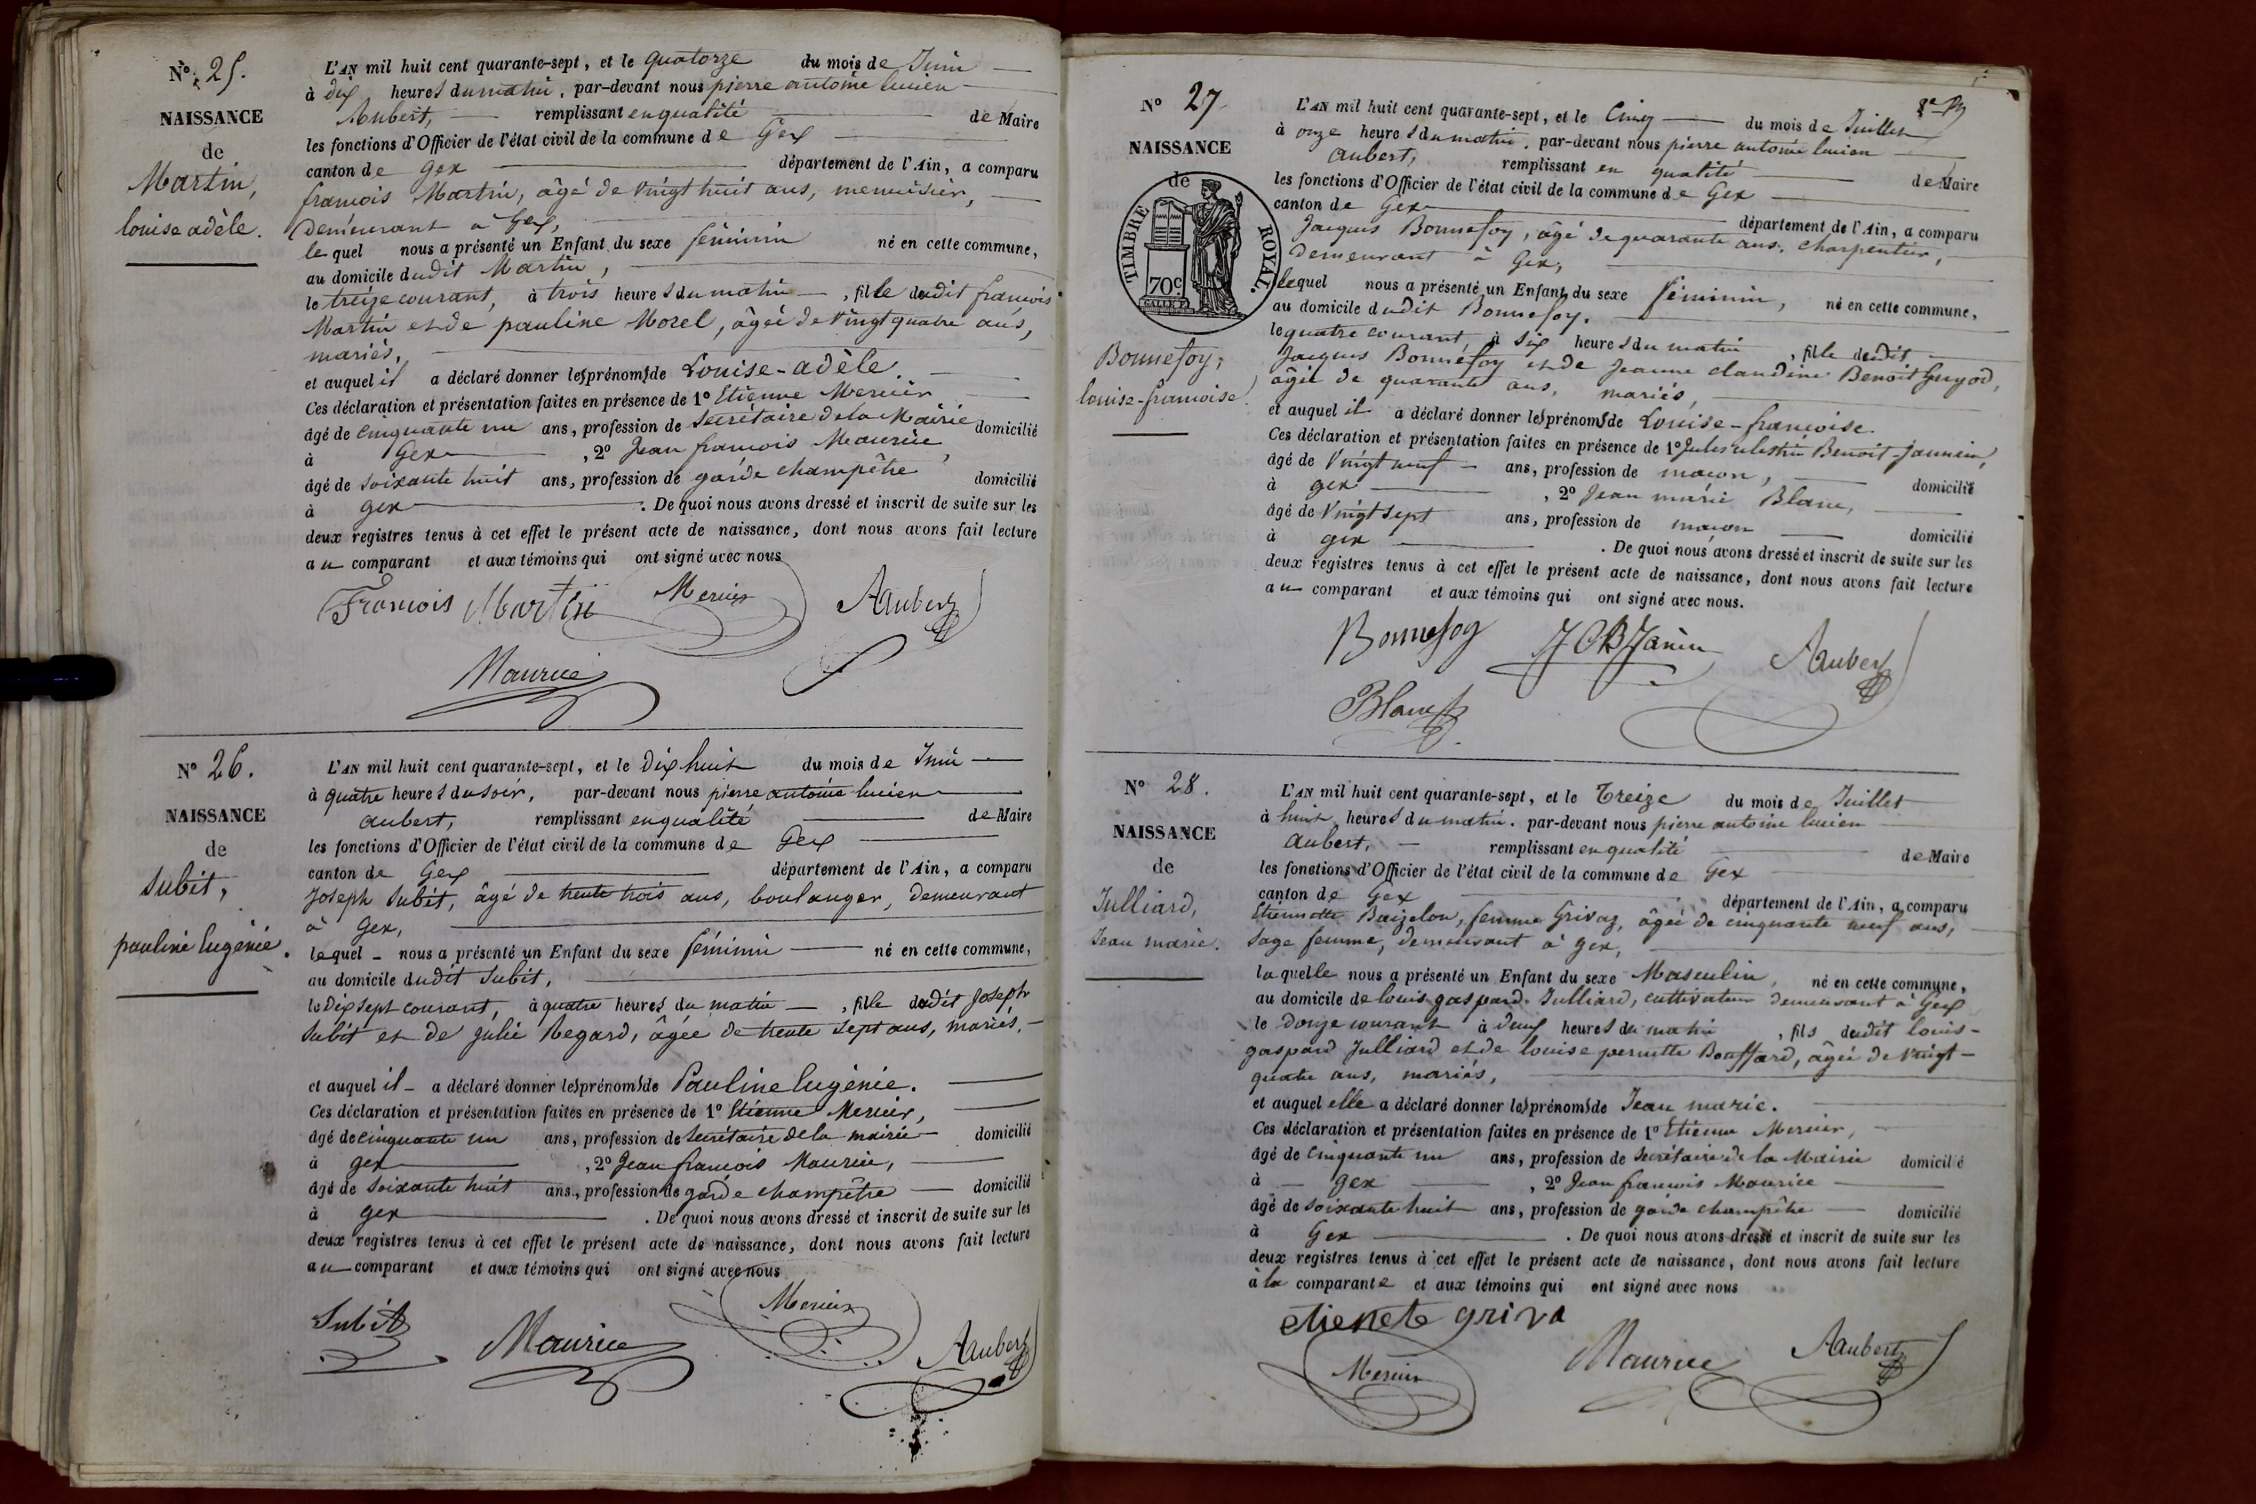 N° 25.
NAISSANCE
de
Martin,
louise adèle.
L'AN mil huit cent quarante-sept, et le quatorze du mois de Juin
à dix heures du matin, par-devant nous pierre antoine lucien
Aubert, remplissant en qualité de Maire
les fonctions d'Officier de l'état civil de la commune de Gex
canton de Gex département de l'Ain, a comparu
françois Martin, âgé de vingt huit ans, menuisier,
demeurant à Gex,
lequel nous a présenté un Enfant du sexe féminin né en cette commune,
au domicile dudit Martin,
le treize courant, à trois heures du matin, fille dudit françois
Martin et de pauline Morel, âgée de vingt quatre ans,
mariés,
et auquel il a déclaré donner les prénoms de Louise-adèle.
Ces déclaration et présentation faites en présence de 1° Etienne Mercier
âgé de cinquante un ans, profession de Secrétaire de la Mairie domicilié
à Gex, 2° Jean françois Maurice,
âgé de soixante huit ans, profession de garde champêtre domicilié
à gex. De quoi nous avons dressé et inscrit de suite sur les
deux registres tenus à cet effet le présent acte de naissance, dont nous avons fait lecture
au comparant et aux témoins qui ont signé avec nous
François Martin Mercier Aubert
Maurice
N° 26.
NAISSANCE
de
Subit,
pauline Eugénie.
L'AN mil huit cent quarante-sept, et le Dix huit du mois de Juin
à quatre heures du soir, par-devant nous pierre antoine lucien
aubert, remplissant en qualité de Maire
les fonctions d'Officier de l'état civil de la commune de Gex
canton de Gex département de l'Ain, a comparu
Joseph Subit, âgé de trente trois ans, boulanger, demeurant
à Gex,
lequel nous a présenté un Enfant du sexe féminin né en cette commune,
au domicile dudit Subit,
le Dix sept courant, à quatre heures du matin, fille dudit Joseph
Subit et de Julie Regard, âgée de trente sept ans, mariés,
et auquel il a déclaré donner les prénoms de Pauline Eugénie.
Ces déclaration et présentation faites en présence de 1° Etienne Mercier,
âgé de cinquante un ans, profession de Secrétaire de la mairie domicilié
à gex, 2° Jean françois Maurice,
âgé de soixante huit ans, profession de garde champêtre domicilié
à gex. De quoi nous avons dressé et inscrit de suite sur les
deux registres tenus à cet effet le présent acte de naissance, dont nous avons fait lecture
au comparant et aux témoins qui ont signé avec nous
Subit Maurice Mercier Aubert
N° 27
NAISSANCE
de
TIMBRE ROYAL.
70c
Bonnefoy,
louise-françoise
L'AN mil huit cent quarante-sept, et le Cinq du mois de Juillet
à onze heures du matin, par-devant nous pierre antoine lucien
aubert, remplissant en qualité de Maire
les fonctions d'Officier de l'état civil de la commune de Gex
canton de Gex département de l'Ain, a comparu
Jacques Bonnefoy, âgé de quarante ans, charpentier,
demeurant à Gex,
lequel nous a présenté un Enfant du sexe féminin, né en cette commune,
au domicile dudit Bonnefoy.
le quatre courant, à six heures du matin, fille dudit
Jacques Bonnefoy et de Jeanne claudine Benoit Guyod,
âgée de quarante ans, mariés,
et auquel il a déclaré donner les prénoms de Louise-françoise.
Ces déclaration et présentation faites en présence de 1° Jules celestin Benoit-Jannin,
âgé de Vingt neuf ans, profession de maçon, domicilié
à gex, 2° Jean marie Blanc,
âgé de Vingt sept ans, profession de maçon domicilié
à gex. De quoi nous avons dressé et inscrit de suite sur les
deux registres tenus à cet effet le présent acte de naissance, dont nous avons fait lecture
au comparant et aux témoins qui ont signé avec nous.
Bonnefoy JCBJanin Aubert
Blanc
N° 28.
NAISSANCE
de
Julliard,
Jean marie.
L'AN mil huit cent quarante-sept, et le Treize du mois de Juillet
à huit heures du matin. par-devant nous pierre antoine lucien
Aubert, remplissant en qualité de Maire
les fonctions d'Officier de l'état civil de la commune de Gex
canton de Gex département de l'Ain, a comparu
Etiennette Baizelon, femme Grivaz, âgée de cinquante neuf ans,
sage femme, demeurant à Gex,
laquelle nous a présenté un Enfant du sexe Masculin, né en cette commune,
au domicile de louis gaspard Julliard, cultivateur demeurant à Gex
le Douze courant à deux heures du matin, fils dudit louis-
gaspard Julliard et de louise pernette Bouffard, âgée de vingt-
quatre ans, mariés,
et auquel elle a déclaré donner les prénoms de Jean marie.
Ces déclaration et présentation faites en présence de 1° Etienne Mercier,
âgé de Cinquante un ans, profession de Secrétaire de la Mairie domicilié
à gex, 2° Jean françois Maurice
âgé de soixante huit ans, profession de garde champêtre domicilié
à Gex. De quoi nous avons dressé et inscrit de suite sur les
deux registres tenus à cet effet le présent acte de naissance, dont nous avons fait lecture
à la comparante et aux témoins qui ont signé avec nous
etienete griva
Mercier Maurice Aubert